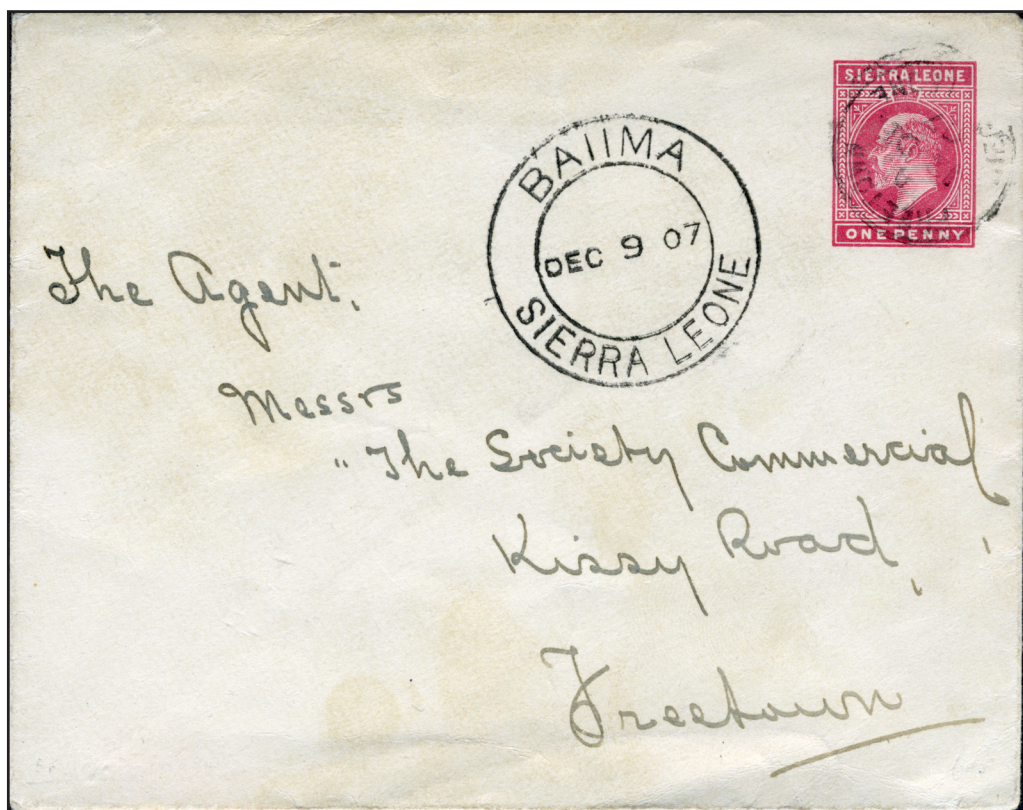 SIERRA LEONE
ONE PENNY
BAIIMA
DEC 9 07
SIERRA LEONE
The Agent,
Messrs
"The Society Commercial
Kissy Road,
Freetown